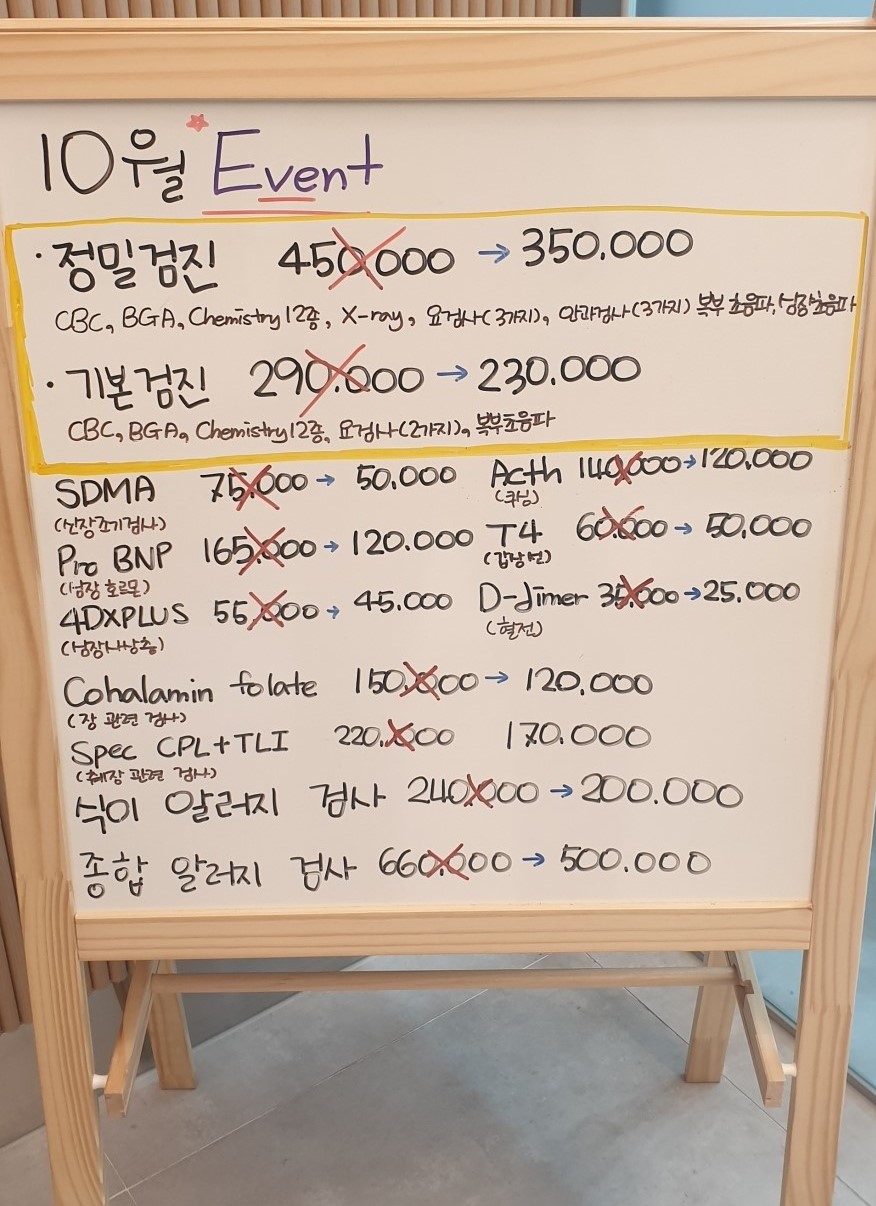 10월 Event
· 정밀검진 450.000 → 350.000
CBC, BGA, Chemistry 12종, X-ray, 요검사(3가지), 안과검사(3가지) 복부초음파, 심장초음파
· 기본검진 290.000 → 230.000
CBC, BGA, Chemistry 12종, 요검사(2가지), 복부초음파
SDMA 75.000 → 50.000
(신장조기검사)
Acth 140.000 → 120.000
(쿠싱)
Pro BNP 165.000 → 120.000
(심장 호르몬)
T4 60.000 → 50.000
(갑상선)
4DXPLUS 55.000 → 45.000
(심장사상충)
D-dimer 35.000 → 25.000
(혈전)
Cohalamin folate 150.000 → 120.000
(장 관련 검사)
Spec CPL+TLI 220.000 170.000
(췌장 관련 검사)
식이 알러지 검사 240.000 → 200.000
종합 알러지 검사 660.000 → 500.000